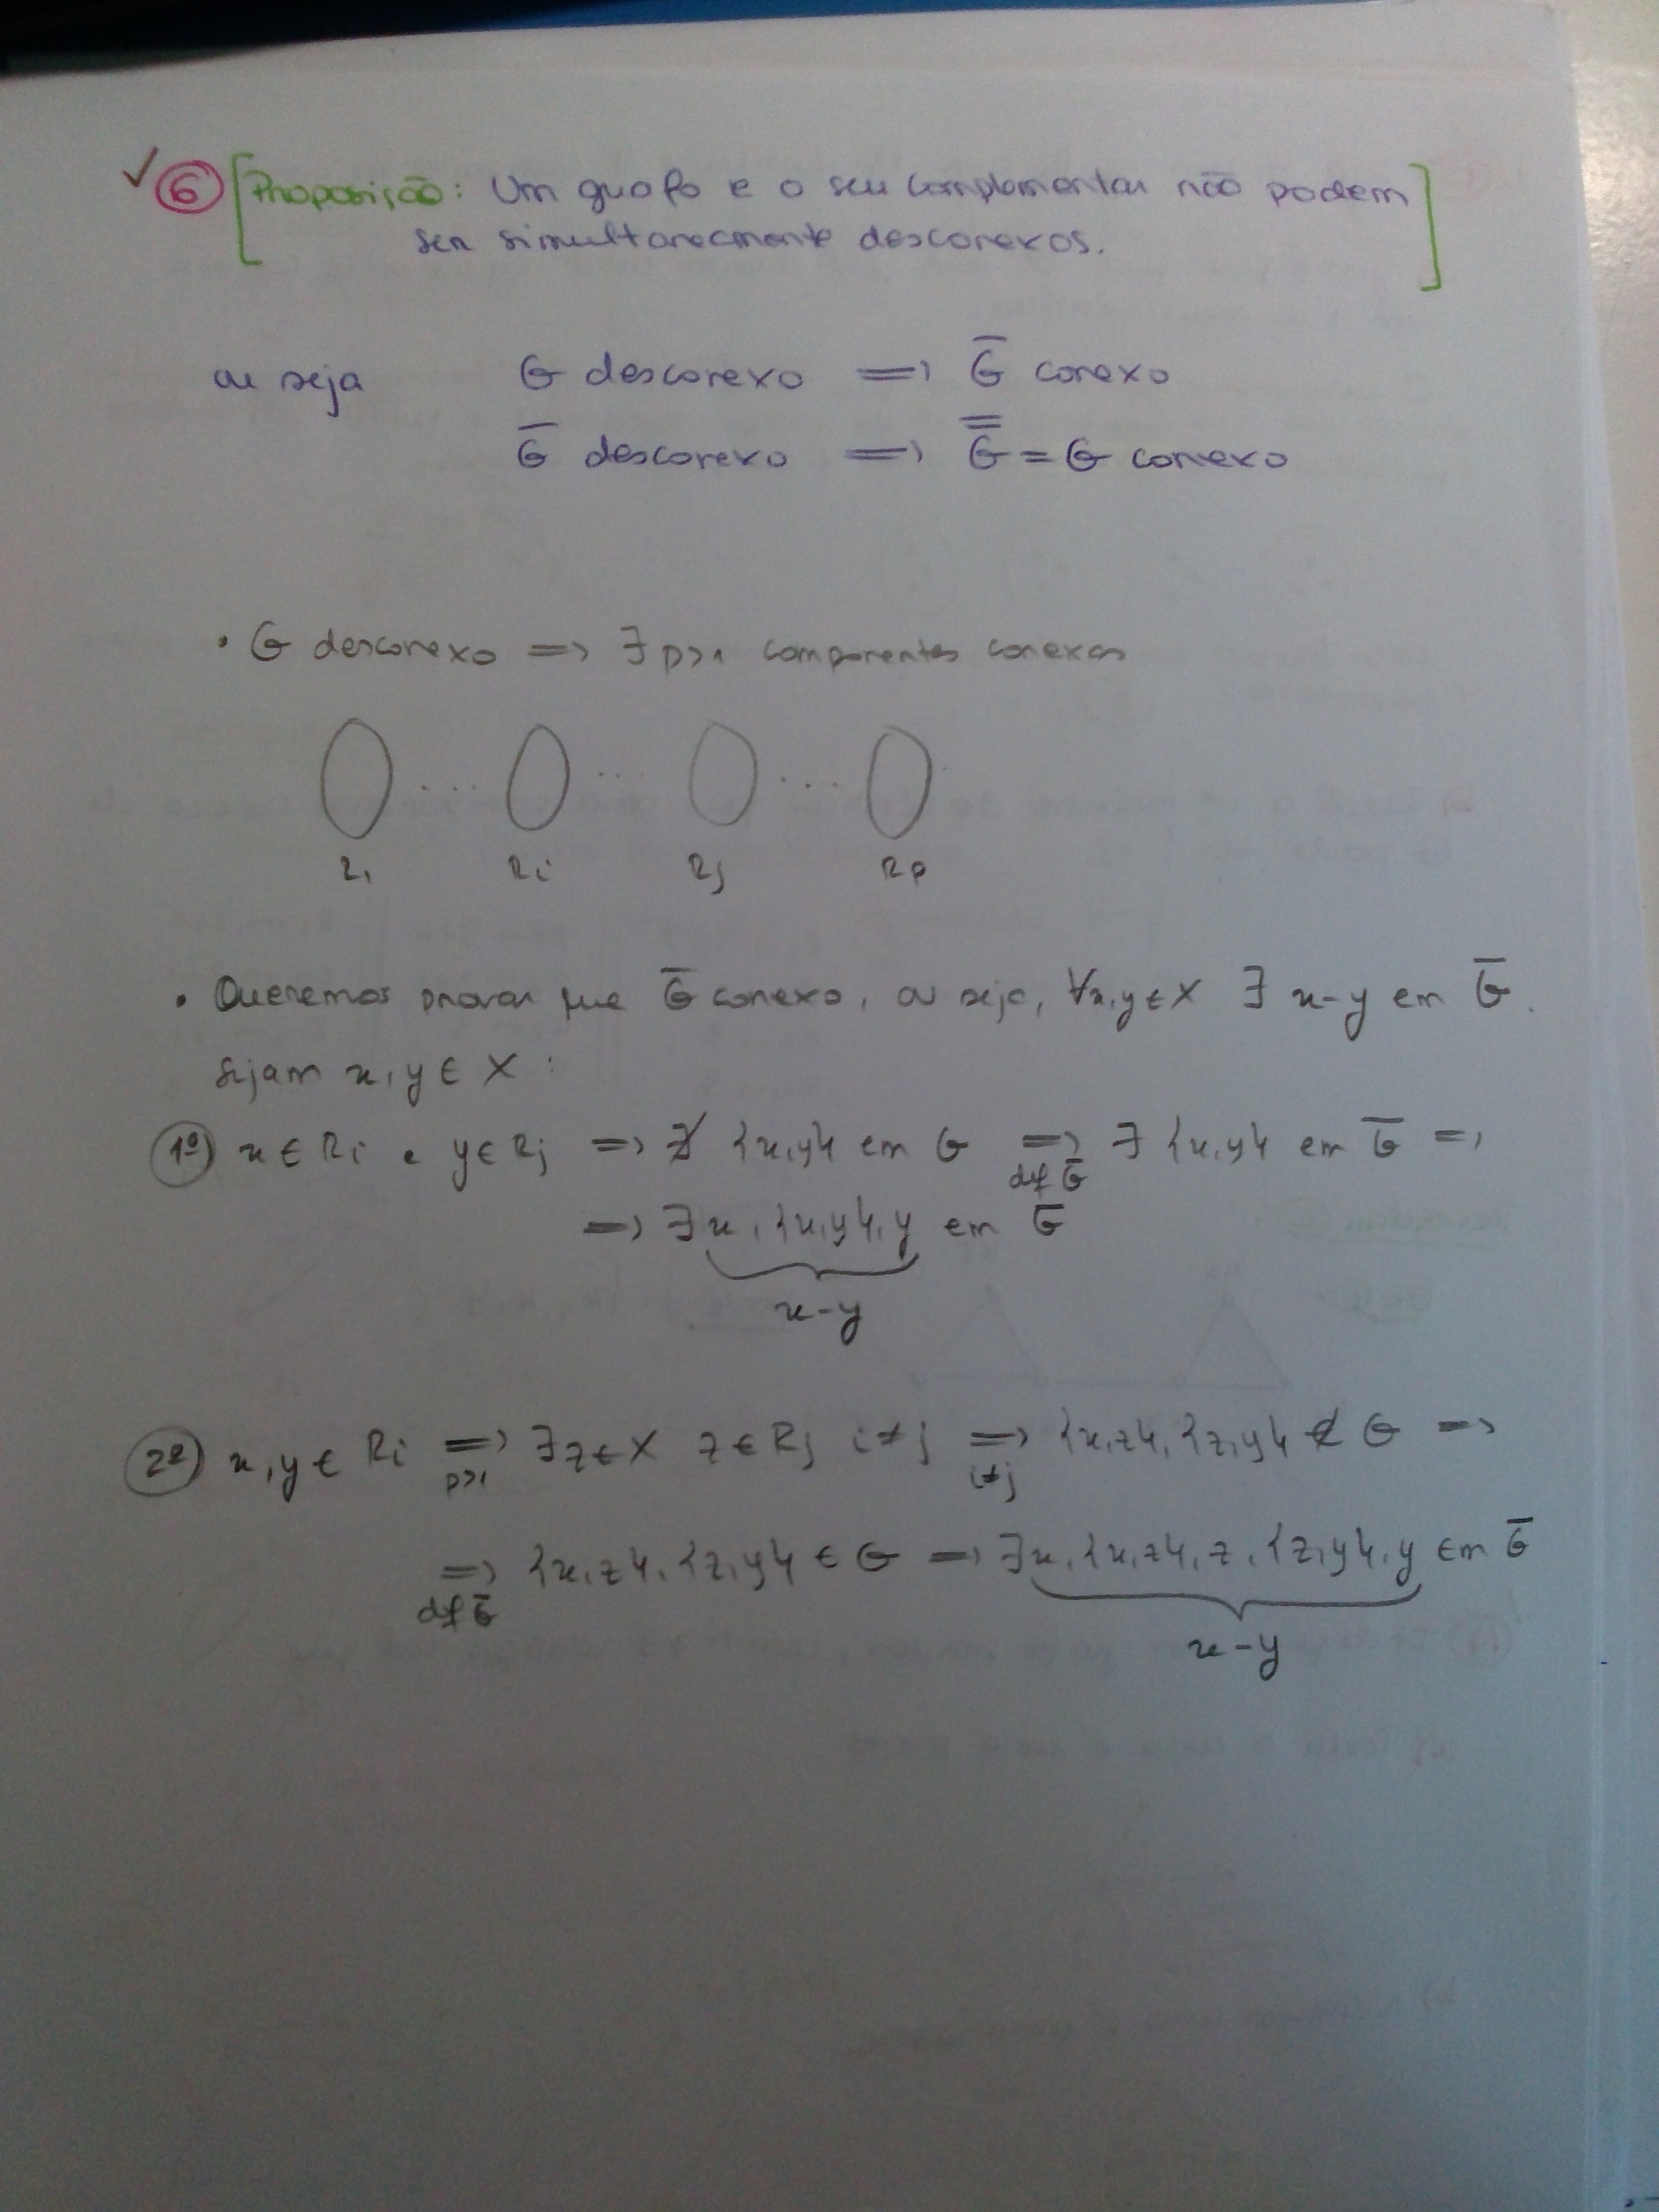 ✓ ⑥ [Proposição: Um grafo e o seu complementar não podem
ser simultaneamente desconexos.]
ou seja G desconexo => G̅ conexo
G̅ desconexo => G̿ = G conexo
• G desconexo => ∃ p>1 componentes conexas
... ... ...
R₁ Ri Rj Rp
• Queremos provar que G̅ conexo, ou seja, ∀x,y∈X ∃ x-y em G̅.
sejam x,y ∈ X:
1º) x ∈ Ri e y ∈ Rj => ∄ {x,y} em G => ∃ {x,y} em G̅ =>
def G̅
=> ∃ x, {x,y}, y em G̅
x-y
2º) x,y ∈ Ri => ∃z∈X z∈Rj i≠j => {x,z}, {z,y} ∉ G =>
p>1 i≠j
=> {x,z}, {z,y} ∈ G => ∃x, {x,z}, z, {z,y}, y em G̅
def G̅
x-y